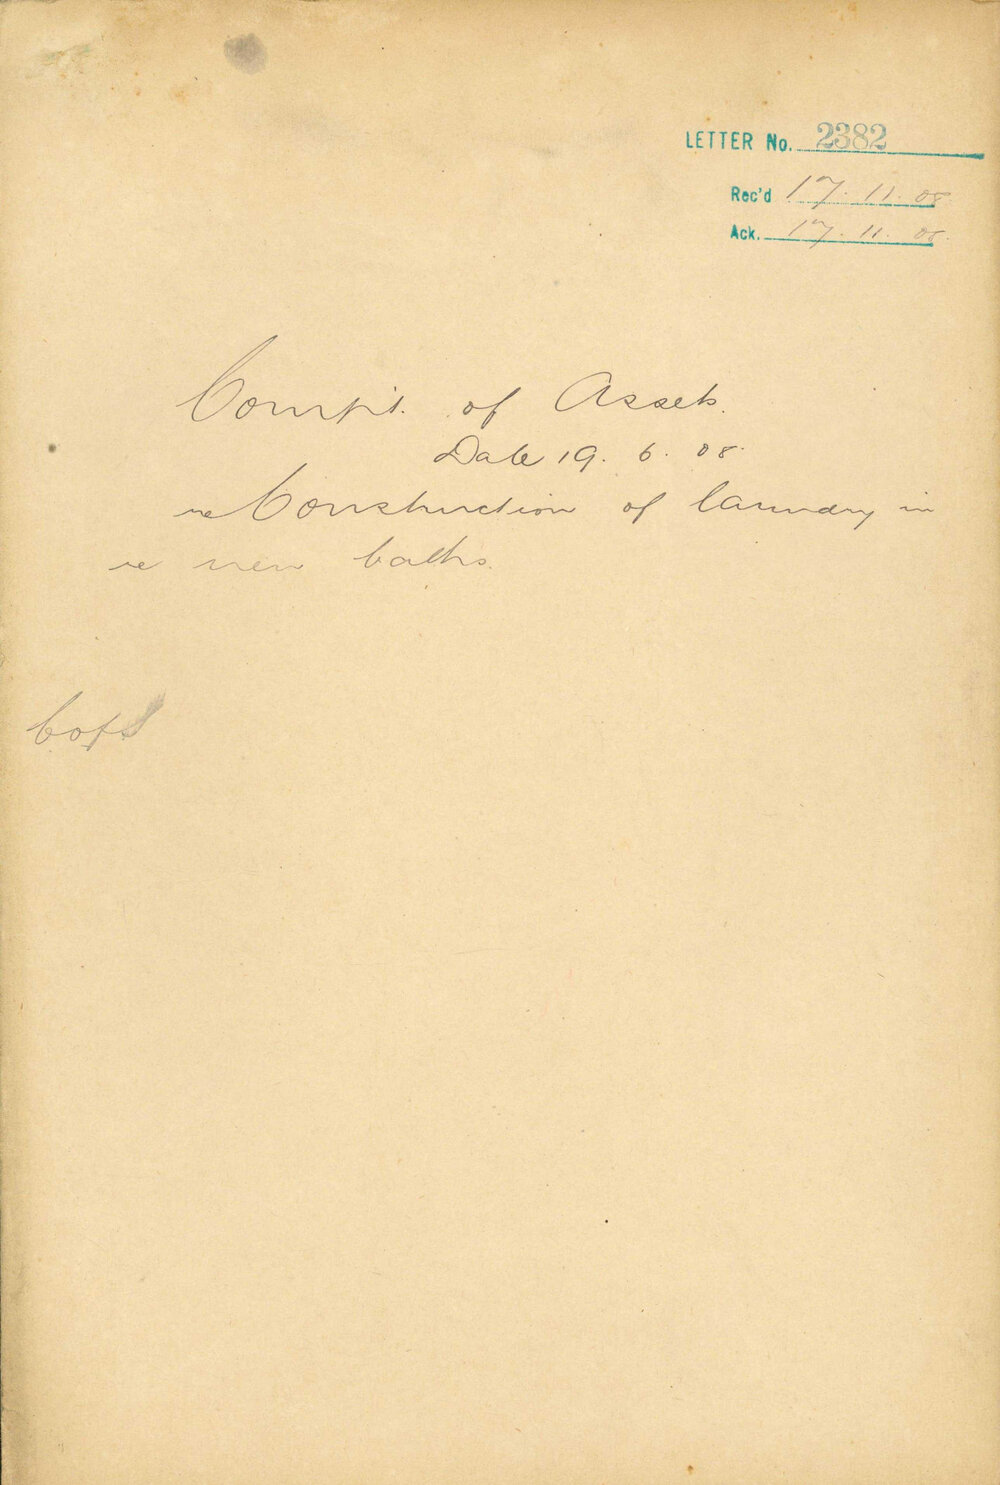 LETTER No. 2382
Rec'd 17. 11. 08
Ack. 17. 11. 08.
Compt. of Assets.
Date 19. 6. 08.
re Construction of laundry in
re new baths.